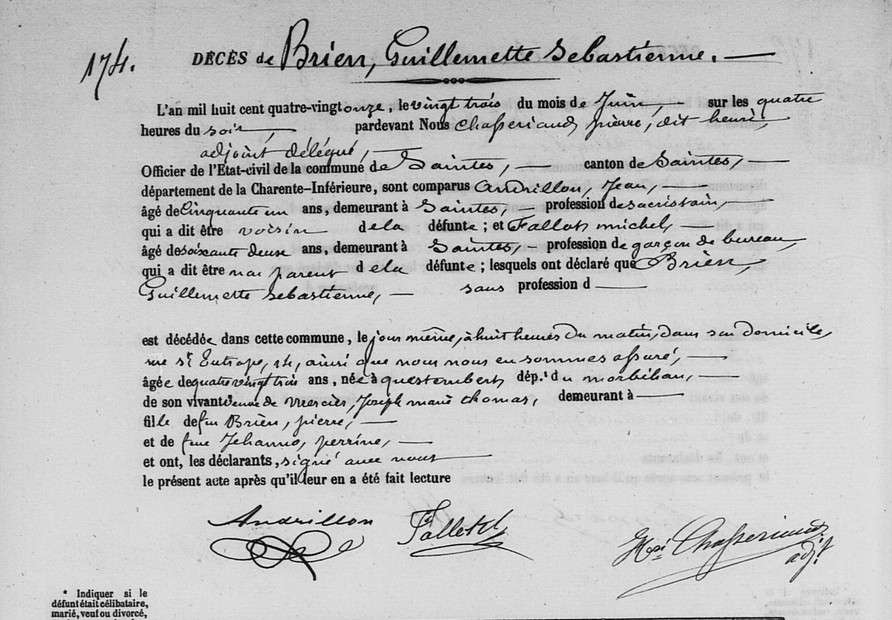 174.
DÉCÈS de Brien, Guillemette Sebastienne. —
L'an mil huit cent quatre-vingt onze, le vingt trois du mois de Juin, — sur les quatre
heures du soir, — pardevant Nous Chasseriaud, pierre, dit henri,
adjoint délégué, —
Officier de l'État-civil de la commune de Saintes, — canton de Saintes, —
département de la Charente-Inférieure, sont comparus Andrillon, Jean, —
âgé de Cinquante un ans, demeurant à Saintes, — profession de sacristain, —
qui a dit être voisin de la défunte ; et Fallot, michel,
âgé de soixante deux ans, demeurant à Saintes, — profession de garçon de bureau,
qui a dit être non parent de la défunte ; lesquels ont déclaré que Brien,
Guillemette Sebastienne, — sans profession d —
est décédée dans cette commune, le jour même, à huit heures du matin, dans son domicile,
rue St Eutrope, 14, ainsi que nous nous en sommes assuré, —
âgée de quatre vingt trois ans, née à questembert, dép.t du morbihan, —
de son vivant veuve de Mercier, Joseph marie thomas, demeurant à —
fille de feu Brien, pierre, —
et de feue Jehanno, perrine, —
et ont, les déclarants, signé avec nous —
le présent acte après qu'il leur en a été fait lecture
Andrillon Fallot Hri Chasseriaud
adj.t
* Indiquer si le
défunt était célibataire,
marié, veuf ou divorcé,